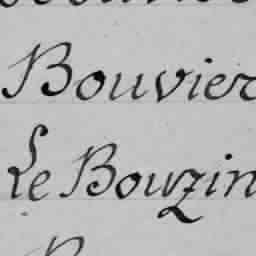 Bouvier
Le Bouzin